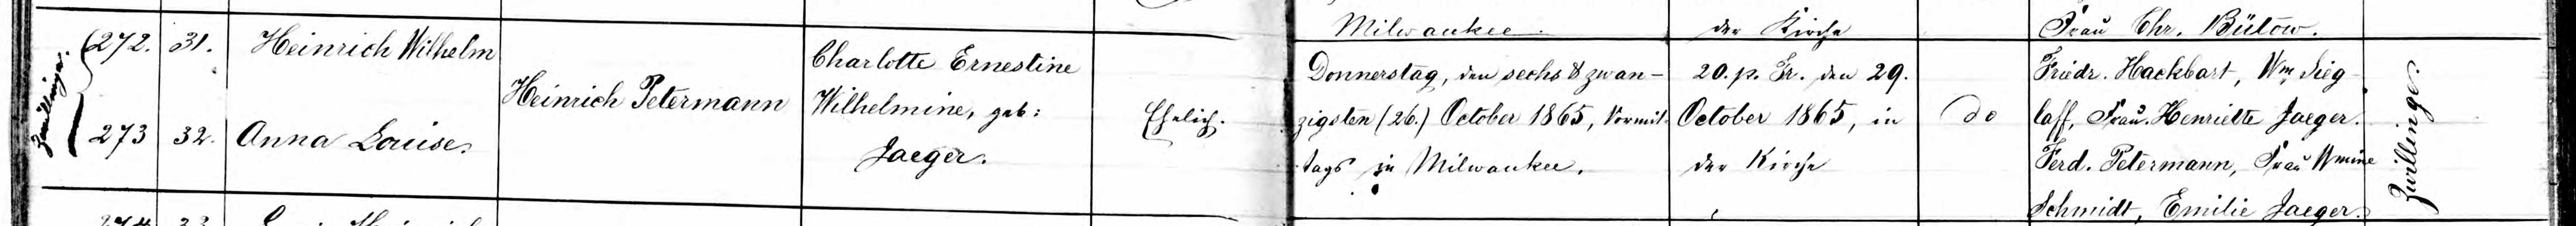 Milwaukee.
der Kirche
Frau Chr. Bülow.
Zwillinge.
272. 31. Heinrich Wilhelm
273 32. Anna Louise.
Heinrich Petermann
Charlotte Ernestine
Wilhelmine, geb:
Jaeger.
Ehelich.
Donnerstag, den sechs & zwan-
zigsten (26.) October 1865, Vormit-
tags in Milwaukee.
20. p. Tr. den 29.
October 1865, in
der Kirche
do
Friedr. Hackbart, Wm Sieg-
laff, Frau Henriette Jaeger.
Ferd. Petermann, Frau Wmine
Schmidt, Emilie Jaeger.
Zwillinge.